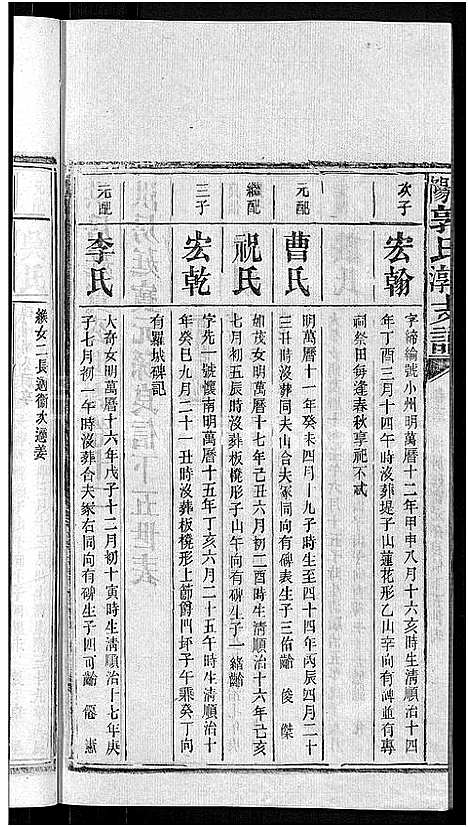 陽郭氏漷支譜
次子
宏翰
字締綸號小州明萬曆十二年甲申八月十六亥時生清順治十四
年丁酉三月十四午時沒葬堤子山蓮花形乙山辛向有碑並有專
祠祭田每逢春秋享祀不忒
元配
曹氏
明萬曆十一年癸未四月十九子時生至四十四年丙辰四月二十
三丑時沒葬同夫山合夫冢同向有碑表生子三佑齡 俊 傑
繼配
祝氏
如茂女明萬曆十七年己丑六月初二酉時生清順治十六年己亥
七月初五辰時沒葬板櫈形子山午向有碑生子一緒齡
三子
宏乾
字先一號懷南明萬曆十五年丁亥六月二十五午時生清順治十
年癸巳九月二十一丑時沒葬板櫈形上節爵門坪子午兼癸丁向
有羅城碑記
元配
李氏
大奇女明萬曆十六年戊子十二月初十寅時生清順治十七年庚
子七月初一午時沒葬合夫冢右同向有碑生子四可齡 憲
繼女二長適衞次適姜